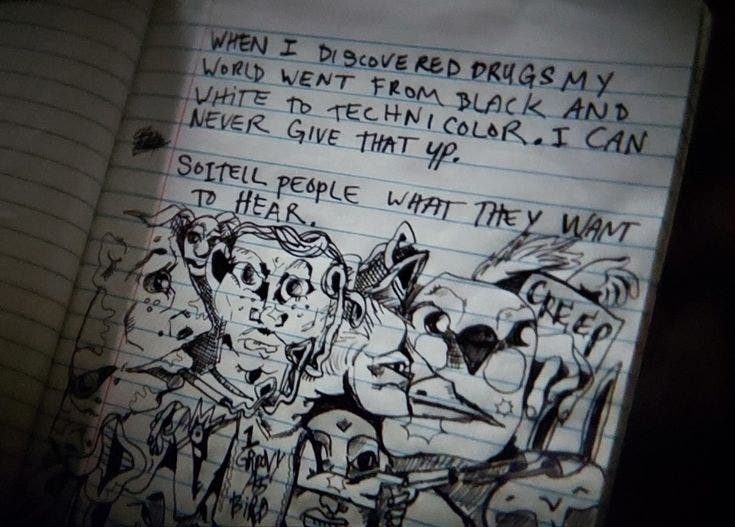 WHEN I DISCOVERED DRUGS MY
WORLD WENT FROM BLACK AND
WHITE TO TECHNICOLOR. I CAN
NEVER GIVE THAT UP.
SO I TELL PEOPLE WHAT THEY WANT
TO HEAR.
CREEP
1
GROOVY
BIRD